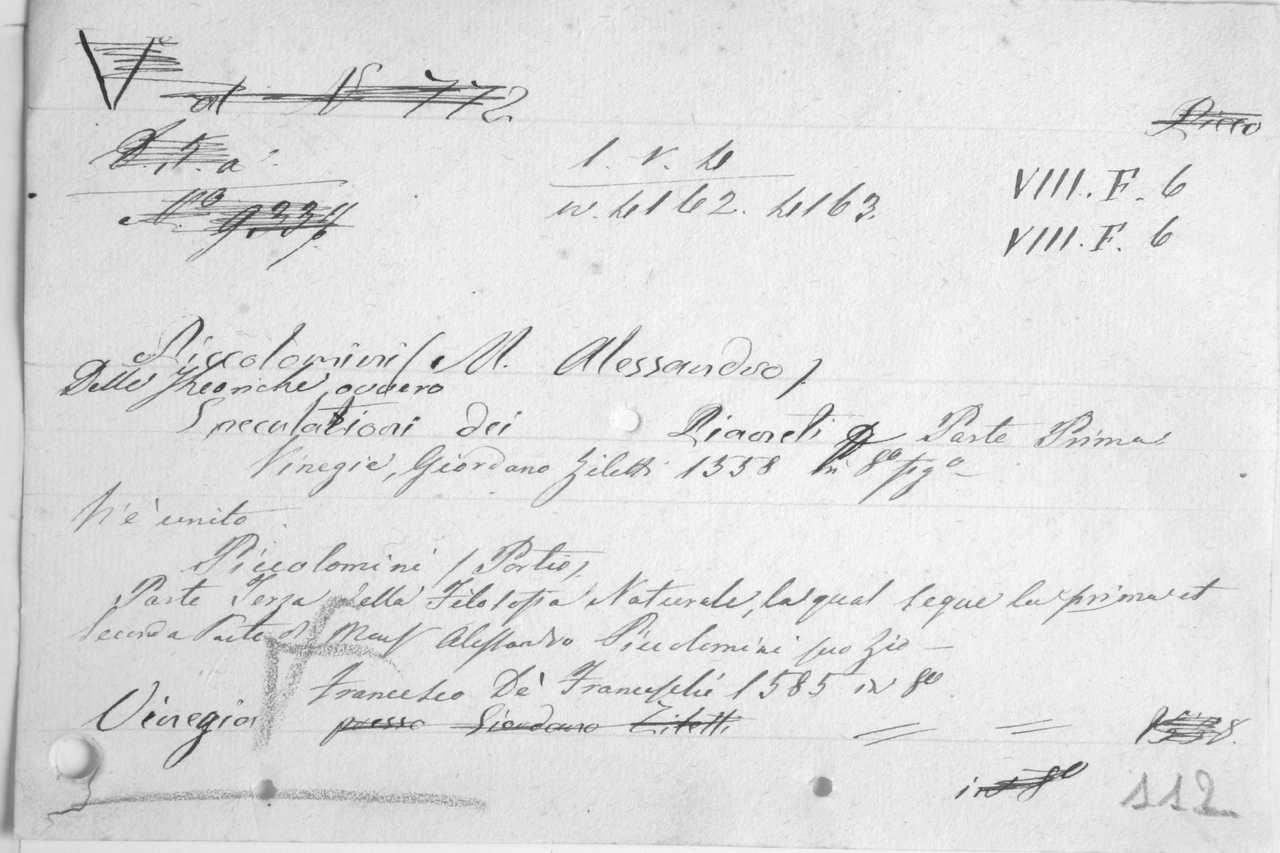 V
al N 772
Picco
S. 5. a
1. V. 4
VIII. F. 6
N.o 9,338
in. 4162. 4163.
VIII. F. 6
Piccolomini (M. Alessandro).
Delle Theoriche, ovvero
Speculationi dei Pianeti Parte Prima
Vinegia, Giordano Ziletti 1558 in 8o figo
V'è unito
Piccolomini (Portio)
Parte Terza della Filosofia Naturale, la qual segue la prima et
seconda Parte di Monsr Alessandro Piccolomini suo Zio
Francesco De' Franceschi 1585 in 8o
Vinegia presso Giordano Ziletti = = 1558.
in 8o
112